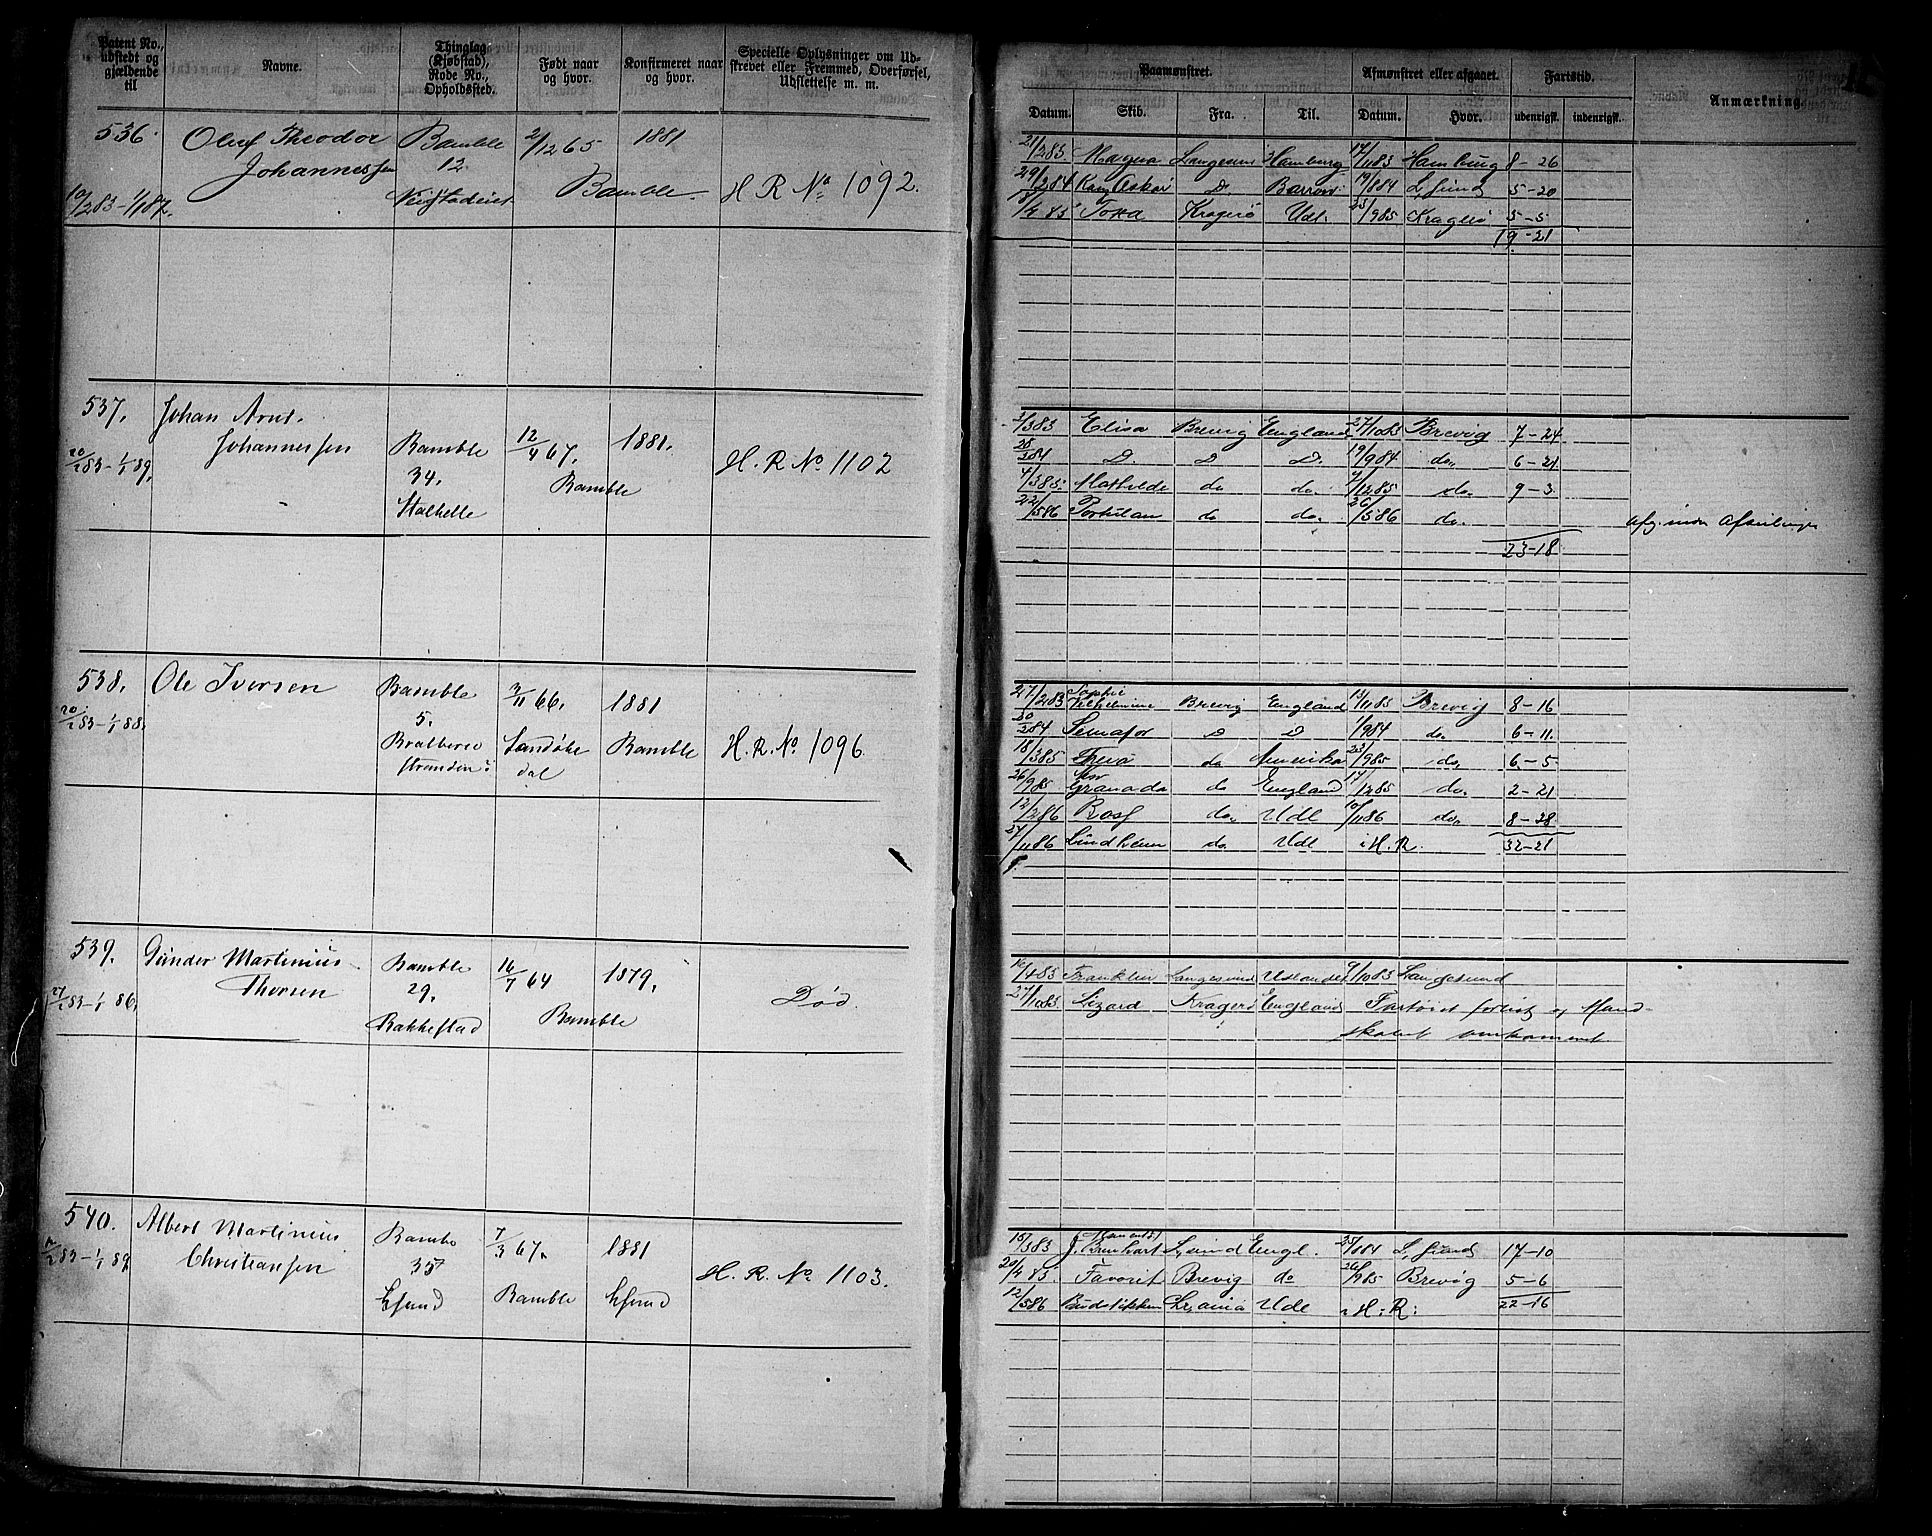 Patent No., udstedt og gjældende til | Navne. | Thinglag (Kjøbstad), Rode No., Opholdssted. | Født naar og hvor. | Konfirmeret naar og hvor. | Specielle Oplysninger om Udskrevet eller Fremmed, Overførsel, Udslettelse m. m.
Paamønstret. | Afmønstret eller afgaaet. | Fartstid. | Anmærkning.
Datum. | Skib. | Fra. | Til. | Datum. | Hvor. | udenrigsk. | indenrigsk.
536. Oluf Theodor Bamble 2/12 65 1881
Johannessen 12. Bamble. H. R. No 1092.
10/2 83 – 1/1 87.
21/2 83 Magna Langesund Hamburg 17/11 83 Hamburg 8-26
29/2 84 Oskar D. Barrow 19/8 84 L,sund 5-20
/4 85 Kragerø Udl. 25/9 85 Kragerø 5-5
19-21
537. Johan Arnt.
Johannessen Bamble 12/4 67. 1881.
20/2 83 – 1/1 89. 34. Bamble H. R. No 1102
Stathelle
1/3 83 Elisa Brevig England 27/10 83 Brevig 7-24
28/3 84 D. D D. 19/9 84 do. 6-21
4/3 85. Mathilde do do. 7/12 85 do. 9-3
22/5 86 do do. 26/5 86 do.
23-18
538. Ole Iversen Bamble 3/11 66. 1881
20/2 83 – 1/1 88. 5. Sandøkedal Bamble H. R. No 1096
27/2 83 Sophie Vilhelmine Brevig England 13/11 83 Brevig 8-16
20/2 84 Semafor D D 1/9 84 do. 6-11
18/3 85 Freia do Amerika 23/9 85 do. 6-5
26/9 85 New Granada do England 17/12 85 do. 2-21
12/2 86 do. Udl 10/11 86 do. 8-28
27/11 86 Lindheim do Udl i H. R. 32-21
539. Gunder Martinius Bamble 16/7 64 1879.
Thorsen 29. Bamble Død
27/2 83 – 1/1 86. Rakkestad
16/4 83 Franklin Langesund Udlandet 9/10 83 Langesund
27/10 83. Lizard Kragerø England Fartøiet forlist og Mand-
skabet omkommet.
540. Albert Martinius Bamble 7/3 67. 1881
Christiansen 35 Bamble Lsund H. R. No 1103.
/2 83 – 1/1 89 Lsund
15/3 83 L,sund Engl. 25/10 84 L,sund 17-10
20/4 85. Favorit Brevig do 26/9 85 Brevig 5-6
12/5 86 Budstikken Udl i H. R. 22-16